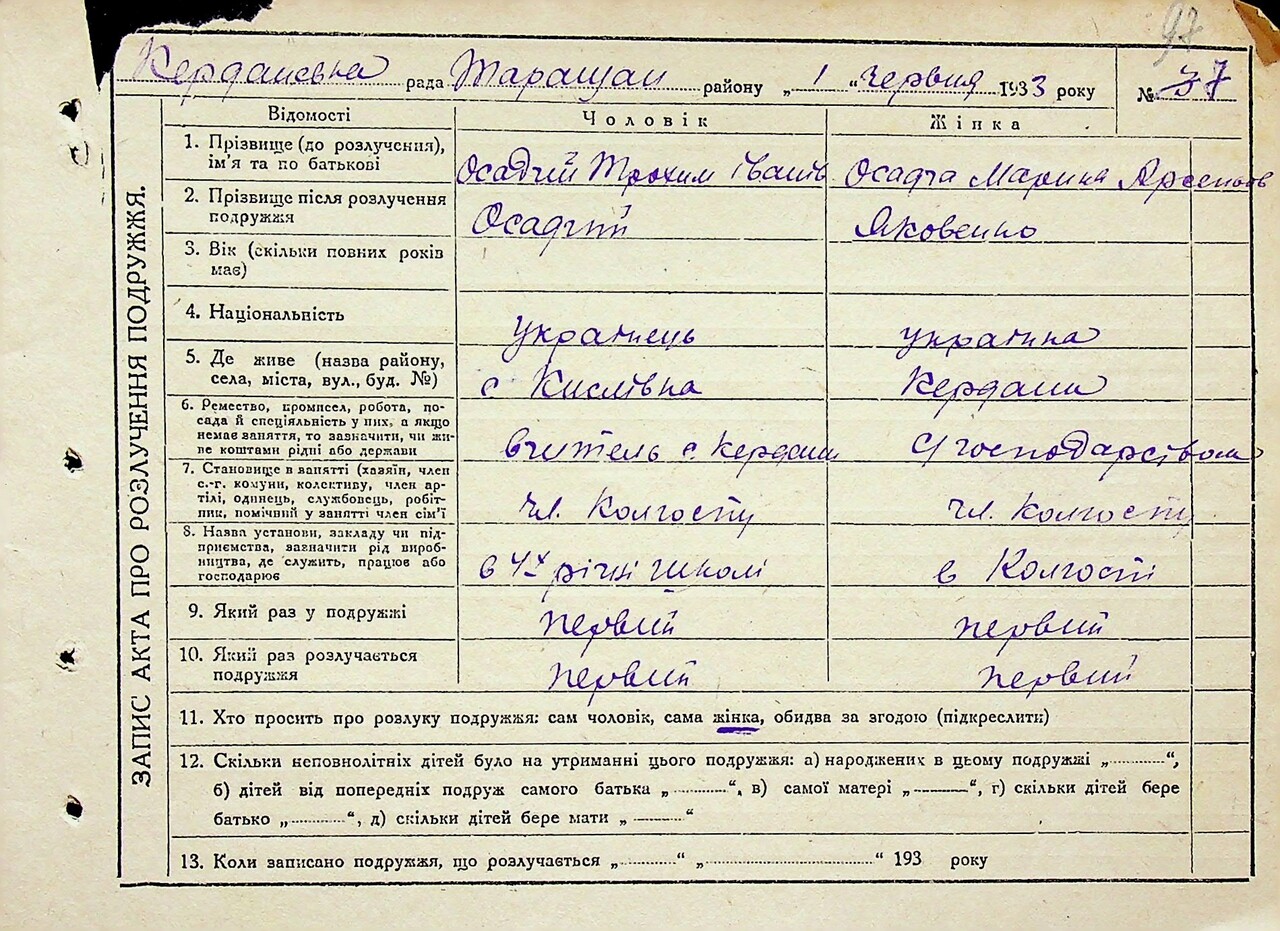 97
Керданівка рада Таращан району „ 1 “ червня 1933 року № 37
ЗАПИС АКТА ПРО РОЗЛУЧЕННЯ ПОДРУЖЖЯ.
Відомості Чоловік Жінка
1. Прізвище (до розлучення), ім'я та по батькові Осадчій Трохим Іванів Осадча Марина Арсентов
2. Прізвище після розлучення подружжя Осадчий Яковенко
3. Вік (скільки повних років має)
4. Національність українець українка
5. Де живе (назва району, села, міста, вул., буд. №) с Кислівка Кердани
6. Ремество, промисел, робота, по-
сада й спеціяльність у них, а якщо
немає заняття, то зазначити, чи жи-
ве коштами рідні або держави вчитель с. Кердани с/господарством
7. Становище в занятті (хазяїн, член
с.-г. комуни, колективу, член ар-
тілі, одинець, службовець, робіт-
ник, помічний у занятті член сім'ї чл. Колгоспу чл. Колгоспу
8. Назва установи, закладу чи під-
приємства, зазначити рід вироб-
ництва, де служить, працює або
господарює в 4х річкі школі в Колгоспі
9. Який раз у подружжі первий первий
10. Який раз розлучається подружжя первий первий
11. Хто просить про розлуку подружжя: сам чоловік, сама жінка, обидва за згодою (підкреслити)
12. Скільки неповнолітніх дітей було на утриманні цього подружжя: а) народжених в цьому подружжі „..........“,
б) дітей від попередніх подруж самого батька „..........“, в) самої матері „..........“, г) скільки дітей бере
батько „..........“, д) скільки дітей бере мати „..........“
13. Коли записано подружжя, що розлучається „..........“ „....................“ 193 року